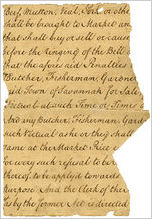 Beef, Mutton, Veal, Pork or othe
shall be brought to Market an
that shall buy or sell or cause
before the Ringing of the Bell
that the aforesaid Penalties
Butcher, Fisherman, Gardner
said Town of Savannah for Sale
Market at such Time or Times
And any Butcher, Fisherman, Gard
such Victual as he or they shall
same at the Market Price
for every such refusal to be
thereof, to be applyed towards
purpose And the Clerk of the
as by the former Act is directed